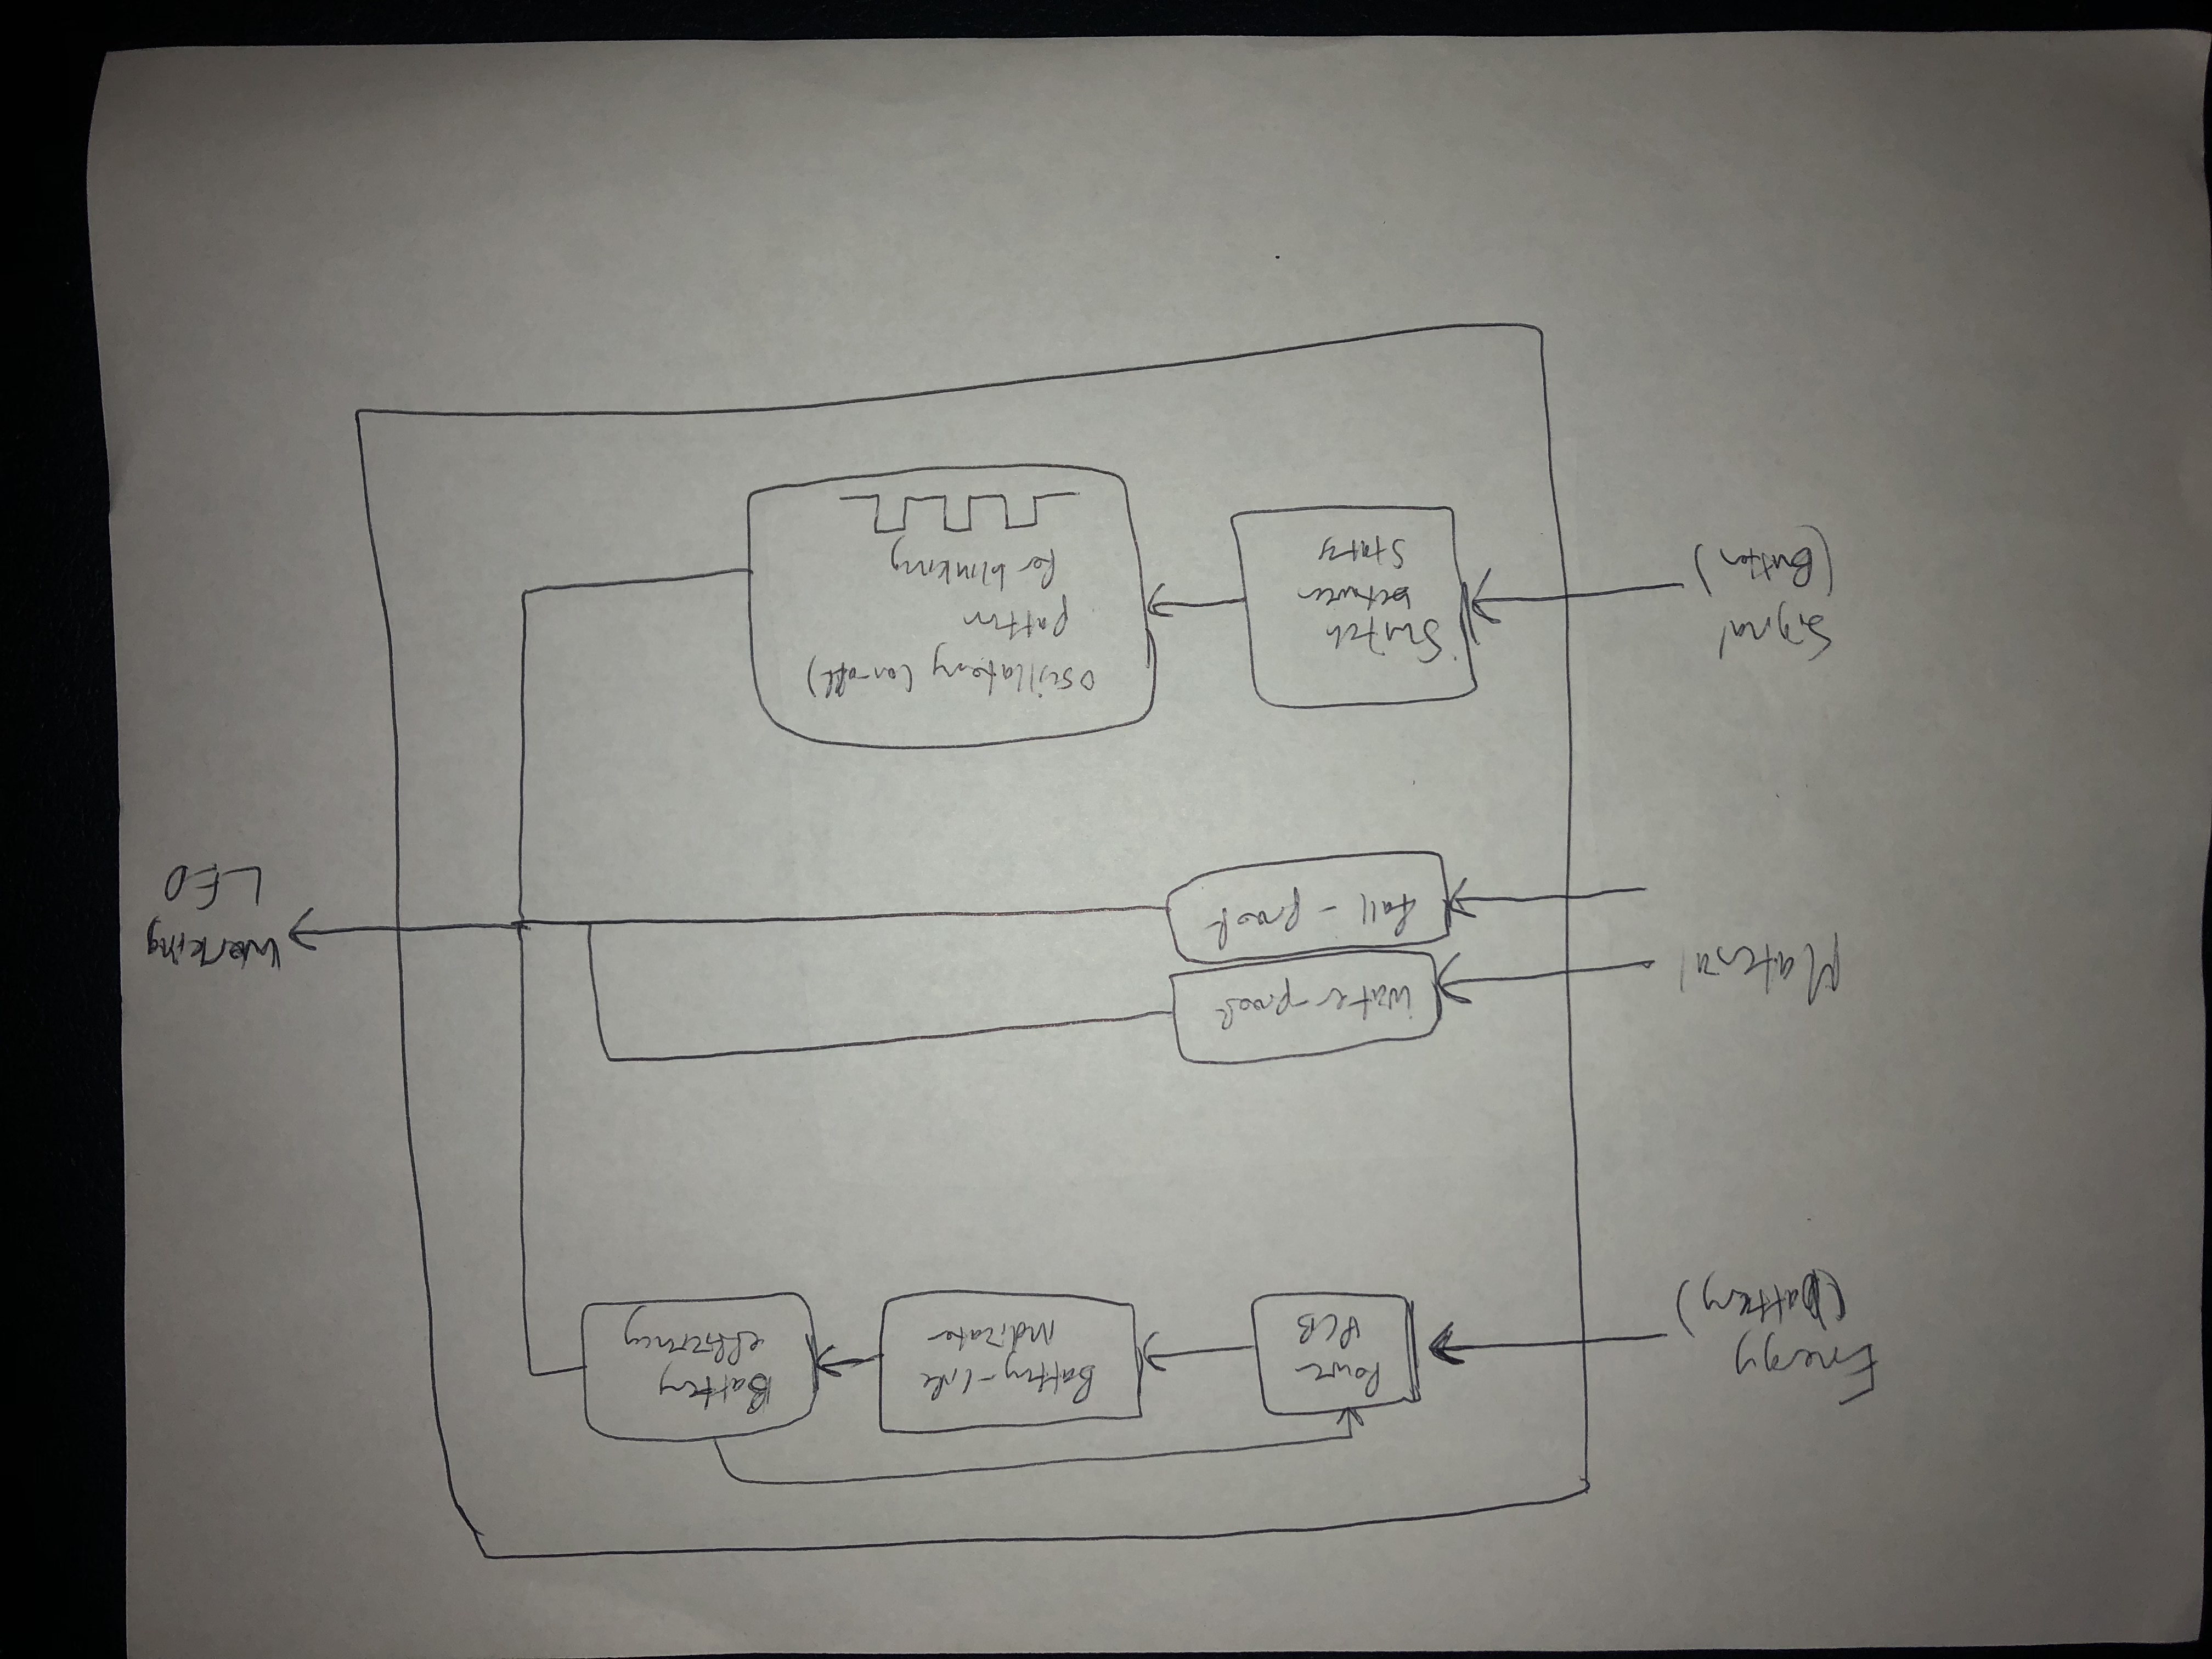 Energy
(battery)
Power
PCB
Battery-life
indicator
Battery
efficiency
Material
water-proof
fall-proof
Working
LED
Signal
(Button)
Switch
between
States
oscillatory (on-off)
pattern
for blinking